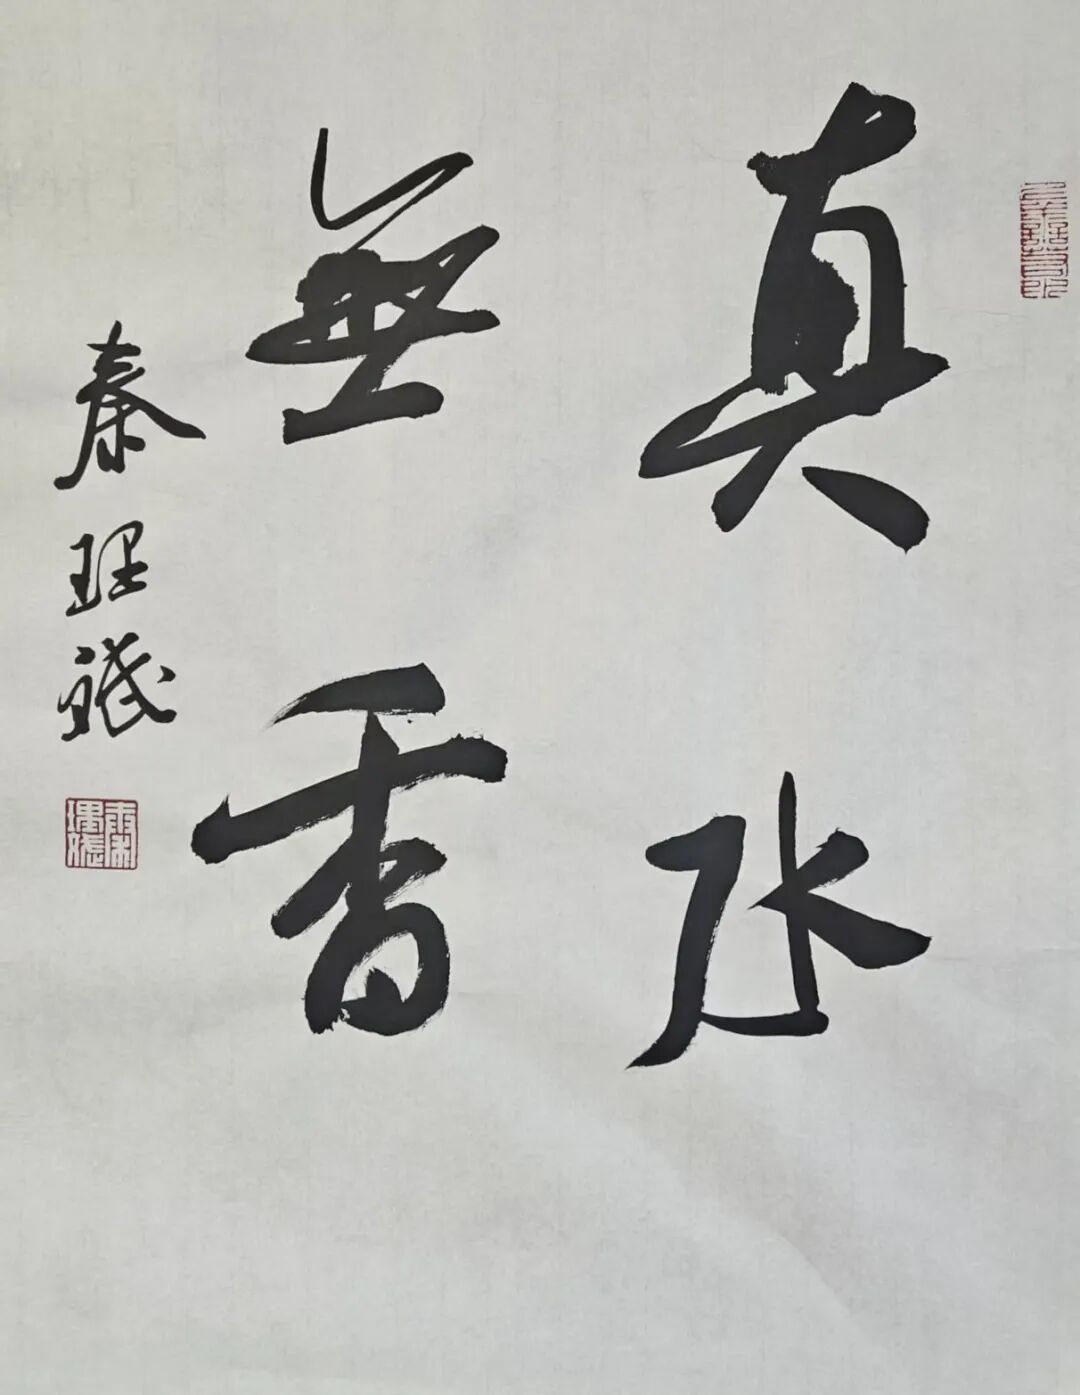 真水
無香
秦理斌